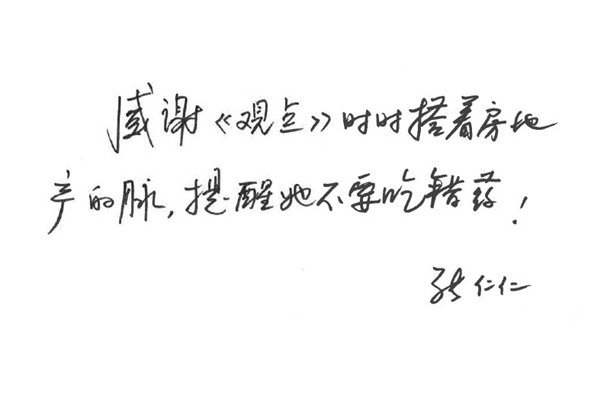 感谢《观点》时时搭着房地
产的脉,提醒她不要吃错药!
张仁仁